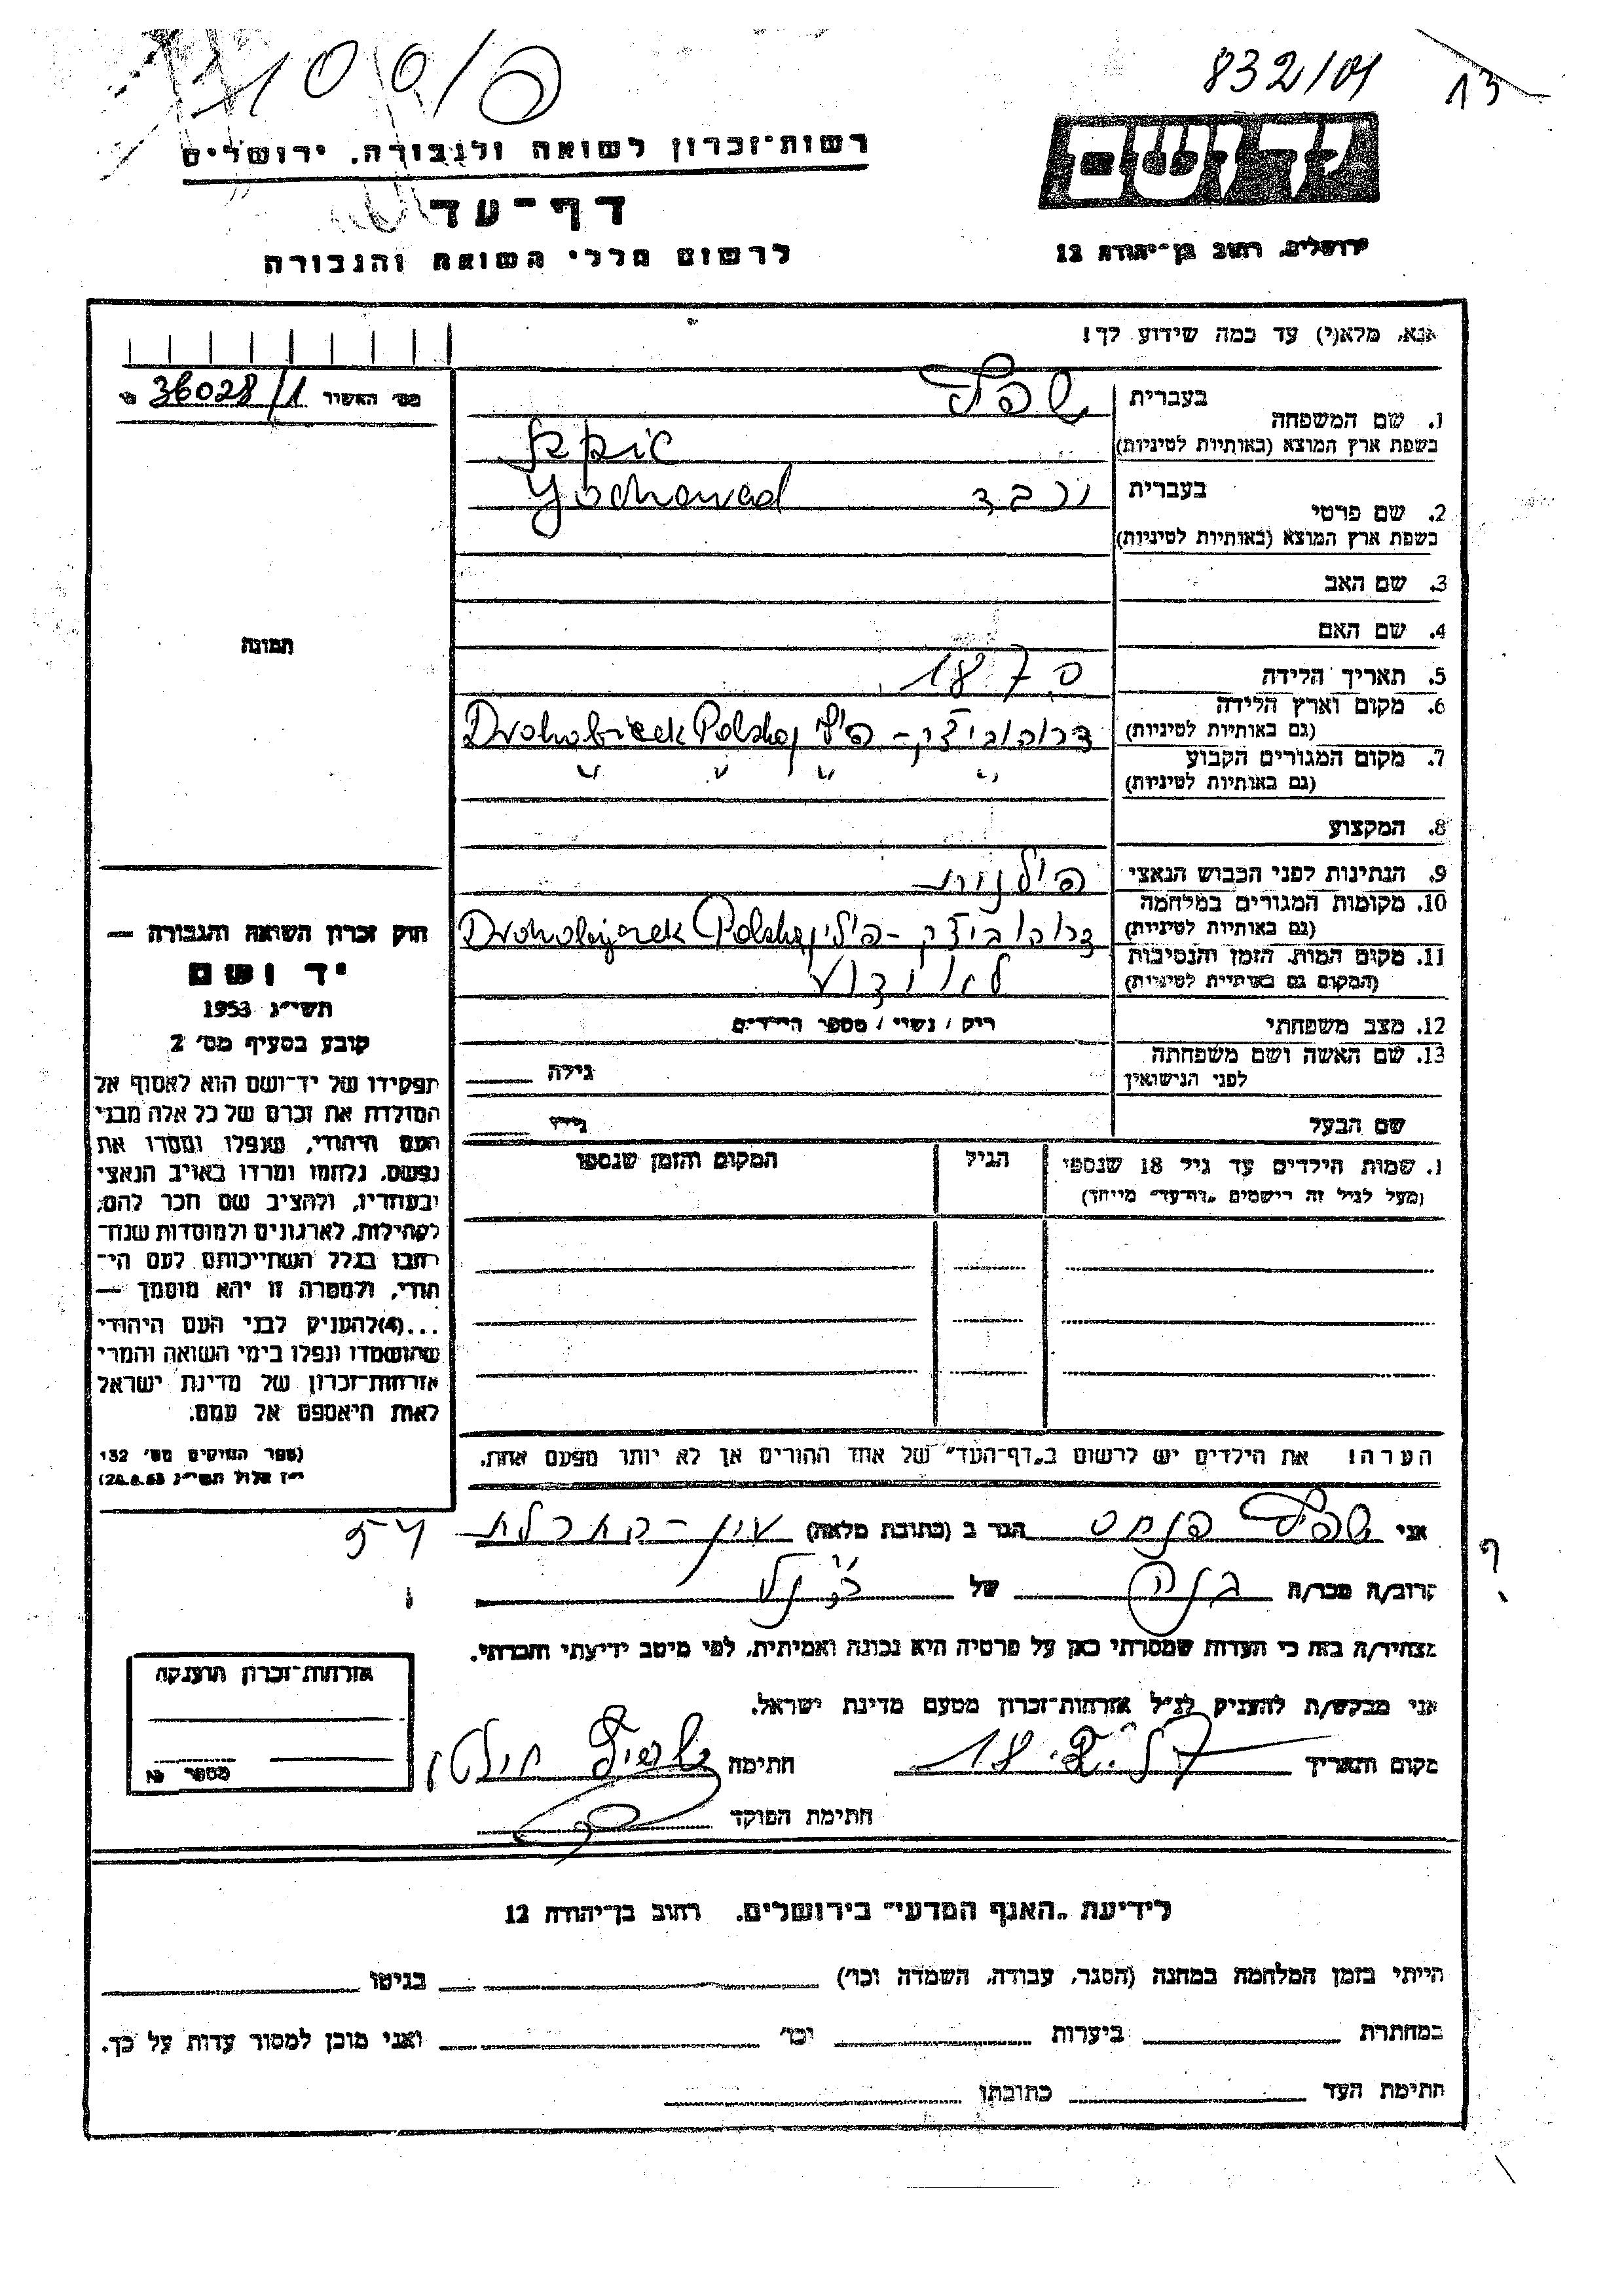 832/01
13
רשות־זכרון לשואה ולגבורה. ירושלים
יד ושם
דף־עד
לרשום חללי השואה והגבורה
ירושלים, רחוב בן־יהודה 12
אנא, מלא(י) עד כמה שידוע לך!
מס׳ האשור 36028/1
1. שם המשפחה
בעברית
בשפת ארץ המוצא (באותיות לטיניות)
2. שם פרטי
בעברית
בשפת ארץ המוצא (באותיות לטיניות) Yochewad
3. שם האב
4. שם האם
תמונה
5. תאריך הלידה 1870
6. מקום וארץ הלידה
(גם באותיות לטיניות)
7. מקום המגורים הקבוע
(גם באותיות לטיניות)
8. המקצוע
9. הנתינות לפני הכבוש הנאצי פולנית
10. מקומות המגורים במלחמה
(גם באותיות לטיניות)
11. מקום המות, הזמן והנסיבות לא ידוע
(המקום גם באותיות לטיניות)
12. מצב משפחתי רוק / נשוי / מספר הילדים
13. שם האשה ושם משפחתה
לפני הנישואין גילה
שם הבעל גילו
חוק זכרון השואה והגבורה —
יד ושם
תשי״ג 1953
קובע בסעיף מס׳ 2
תפקידו של יד־ושם הוא לאסוף אל
המולדת את זכרם של כל אלה מבני
העם היהודי, שנפלו ומסרו את
נפשם, נלחמו ומרדו באויב הנאצי
ובעוזריו, ולהציב שם וזכר להם,
לקהילות, לארגונים ולמוסדות שנח־
רבו בגלל השתייכותם לעם הי־
הודי, ולמטרה זו יהא מוסמך —
...(4)להעניק לבני העם היהודי
שהושמדו ונפלו בימי השואה והמרי
אזרחות־זכרון של מדינת ישראל
לאות היאספם אל עמם.
(ספר החוקים מס׳ 132
י״ז אלול תשי״ג 28.8.53)
1. שמות הילדים עד גיל 18 שנספו
(מעל לגיל זה רישמים „דף־עד״ מייחד)
הגיל
המקום והזמן שנספו
הערה! את הילדים יש לרשום ב„דף־העד״ של אחד ההורים אך לא יותר מפעם אחת.
אני שפיל פנחס הגר ב (כתובת מלאה)
קרוב/ה מכר/ה של
מצהיר/ה בזה כי העדות שמסרתי כאן על פרטיה היא נכונה ואמיתית, לפי מיטב ידיעתי והכרתי.
אני מבקש/ת להעניק לנ״ל אזרחות־זכרון מטעם מדינת ישראל.
מקום ותאריך חתימה
חתימת הפוקד
אזרחות־זכרון הוענקה
מספר
לידיעת „האגף המדעי״ בירושלים. רחוב בן־יהודה 12
הייתי בזמן המלחמה במחנה (הסגר, עבודה, השמדה וכו׳) בגיטו
במחתרת ביערות וכו׳ ואני מוכן למסור עדות על כך.
חתימת העד כתובתו